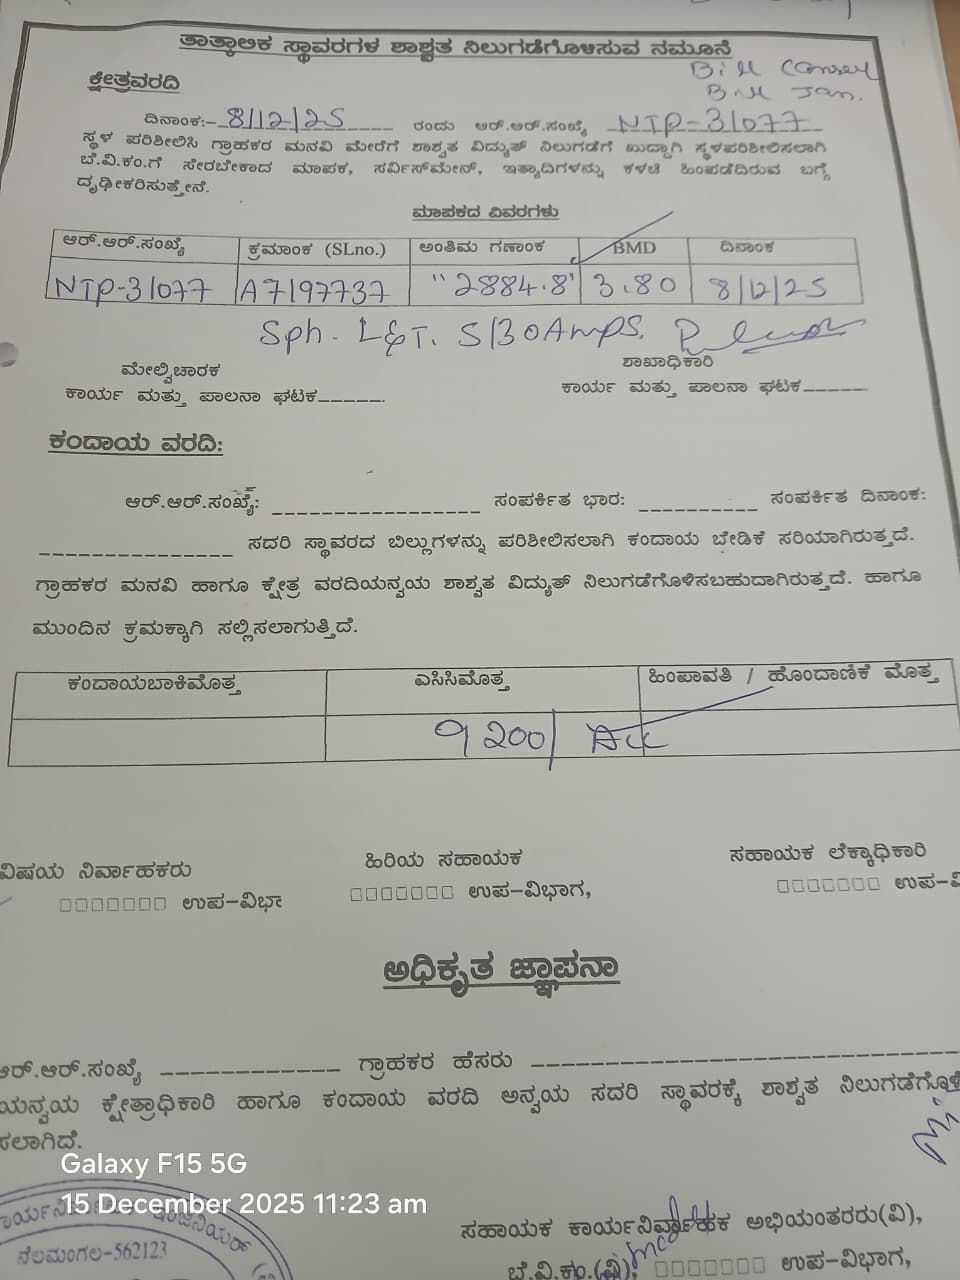 ತಾತ್ಕಾಲಿಕ ಸ್ಥಾವರಗಳ ಶಾಶ್ವತ ನಿಲುಗಡೆಗೊಳಿಸುವ ನಮೂನೆ
Bill Cancel
Bill Jan.
ಕ್ಷೇತ್ರವರದಿ
ದಿನಾಂಕ:- 8/12/25 ರಂದು ಆರ್.ಆರ್.ಸಂಖ್ಯೆ NTP-31077
ಸ್ಥಳ ಪರಿಶೀಲಿಸಿ ಗ್ರಾಹಕರ ಮನವಿ ಮೇರೆಗೆ ಶಾಶ್ವತ ವಿದ್ಯುತ್ ನಿಲುಗಡೆಗೆ ಖುದ್ದಾಗಿ ಸ್ಥಳಪರಿಶೀಲಿಸಲಾಗಿ
ಬೆ.ವಿ.ಕಂ.ಗೆ ಸೇರಬೇಕಾದ ಮಾಪಕ, ಸರ್ವಿಸ್‌ಮೇನ್, ಇತ್ಯಾದಿಗಳನ್ನು ಕಳಚಿ ಹಿಂಪಡೆದಿರುವ ಬಗ್ಗೆ
ದೃಢೀಕರಿಸುತ್ತೇನೆ.
ಮಾಪಕದ ವಿವರಗಳು
ಆರ್.ಆರ್.ಸಂಖ್ಯೆ ಕ್ರಮಾಂಕ (SLno.) ಅಂತಿಮ ಗಣಾಂಕ BMD ದಿನಾಂಕ
NTP-31077 A7197737 "2884.8" 3.80 8/12/25
Sph. L&T. 5/30Amps.
ಮೇಲ್ವಿಚಾರಕ ಶಾಖಾಧಿಕಾರಿ
ಕಾರ್ಯ ಮತ್ತು ಪಾಲನಾ ಘಟಕ_____. ಕಾರ್ಯ ಮತ್ತು ಪಾಲನಾ ಘಟಕ______
ಕಂದಾಯ ವರದಿ:
ಆರ್.ಆರ್.ಸಂಖ್ಯೆ: _________________ ಸಂಪರ್ಕಿತ ಭಾರ: __________ ಸಂಪರ್ಕಿತ ದಿನಾಂಕ:
________________ ಸದರಿ ಸ್ಥಾವರದ ಬಿಲ್ಲುಗಳನ್ನು ಪರಿಶೀಲಿಸಲಾಗಿ ಕಂದಾಯ ಬೇಡಿಕೆ ಸರಿಯಾಗಿರುತ್ತದೆ.
ಗ್ರಾಹಕರ ಮನವಿ ಹಾಗೂ ಕ್ಷೇತ್ರ ವರದಿಯನ್ವಯ ಶಾಶ್ವತ ವಿದ್ಯುತ್ ನಿಲುಗಡೆಗೊಳಿಸಬಹುದಾಗಿರುತ್ತದೆ. ಹಾಗೂ
ಮುಂದಿನ ಕ್ರಮಕ್ಕಾಗಿ ಸಲ್ಲಿಸಲಾಗುತ್ತಿದೆ.
ಕಂದಾಯಬಾಕಿಮೊತ್ತ ಎಸಿಸಿಮೊತ್ತ ಹಿಂಪಾವತಿ / ಹೊಂದಾಣಿಕೆ ಮೊತ್ತ
9200/ Acc
ವಿಷಯ ನಿರ್ವಾಹಕರು ಹಿರಿಯ ಸಹಾಯಕ ಸಹಾಯಕ ಲೆಕ್ಕಾಧಿಕಾರಿ
□□□□□□□ ಉಪ-ವಿಭಾ □□□□□□□ ಉಪ-ವಿಭಾಗ, □□□□□□□ ಉಪ-ವಿ
ಅಧಿಕೃತ ಜ್ಞಾಪನಾ
ಆರ್.ಆರ್.ಸಂಖ್ಯೆ ______________ ಗ್ರಾಹಕರ ಹೆಸರು __________________________________
ಯನ್ವಯ ಕ್ಷೇತ್ರಾಧಿಕಾರಿ ಹಾಗೂ ಕಂದಾಯ ವರದಿ ಅನ್ವಯ ಸದರಿ ಸ್ಥಾವರಕ್ಕೆ ಶಾಶ್ವತ ನಿಲುಗಡೆಗೊಳಿ
ಸಲಾಗಿದೆ.
Galaxy F15 5G
15 December 2025 11:23 am
ಇಂಜಿನಿಯರ್
ನೆಲಮಂಗಲ-562123
ಸಹಾಯಕ ಕಾರ್ಯನಿರ್ವಾಹಕ ಅಭಿಯಂತರರು(ವಿ),
ಬೆ.ವಿ.ಕಂ.(ವಿ), □□□□□□□ ಉಪ-ವಿಭಾಗ,